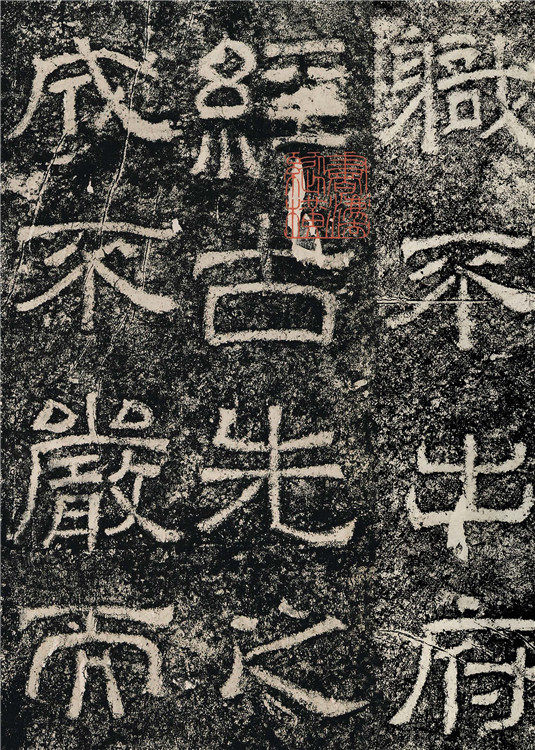 職不出府
經古先之
成不嚴而